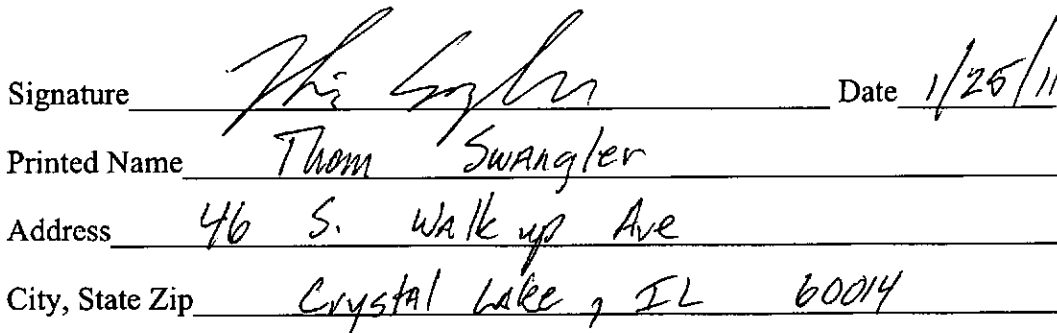 Signature Date 1/25/11
Printed Name Thom Swangler
Address 46 S. Walkup Ave
City, State Zip Crystal Lake, IL 60014